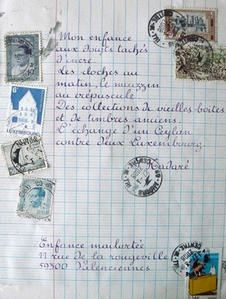 Mon enfance
aux doigts tachés
d'encre.
Les cloches au
matin, le muezzin
au crépuscule
Des collections de vieilles boîtes
et de timbres anciens.
L'échange d'un Ceylan
contre deux Luxembourg.
Nadaré
Enfance mailartée
11 rue de la rougeville
59300 Valenciennes
LUXEMBOURG